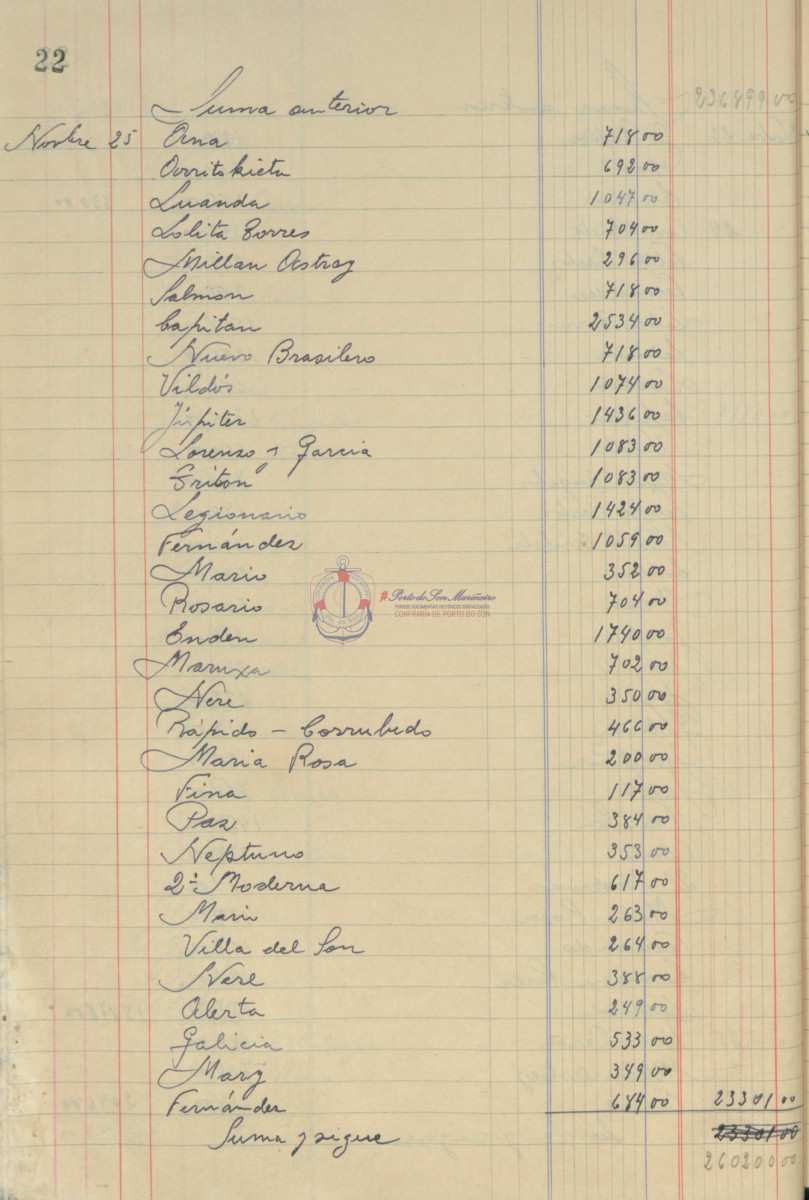 22
Suma anterior 236899 00
Novbre 25 Ana 718 00
Orritokieta 692 00
Luanda 1047 00
Lolita Torres 704 00
Millan Astray 296 00
Salmon 718 00
Capitan 2534 00
Nuevo Brasilero 718 00
Vildós 1074 00
Júpiter 1436 00
Lorenzo y Garcia 1083 00
Triton 1083 00
Legionario 1424 00
Fernández 1059 00
Mario 352 00
Rosario 704 00
Enden 1740 00
Maruxa 702 00
Nere 350 00
Rápido - Corrubedo 466 00
Maria Rosa 200 00
Fina 117 00
Paz 384 00
Neptuno 353 00
2ª Moderna 617 00
Mario 263 00
Villa del Son 264 00
Nere 388 00
Alerta 249 00
Galicia 533 00
Mary 349 00
Fernández 684 00 23301 00
Suma y sigue 23301 00
260200 00
#Porto do Son Mariñeiro
FONDOS DOCUMENTAIS HISTÓRICOS DIXITALIZADOS
CONFRARIA DE PORTO DO SON